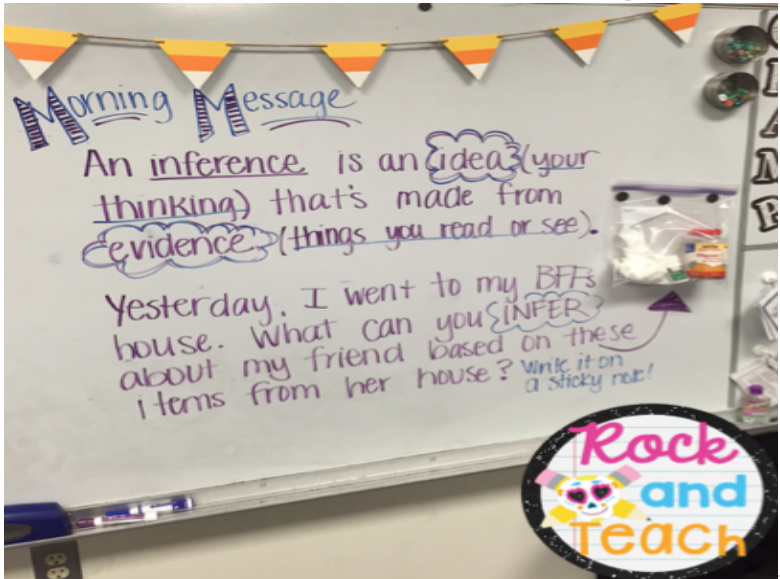 Morning Message
An inference is an idea (your
thinking) that's made from
evidence (things you read or see).
Yesterday, I went to my BFFs
house. What can you INFER
about my friend based on these
items from her house? Write it on
a sticky note!
Rock
and
Teach